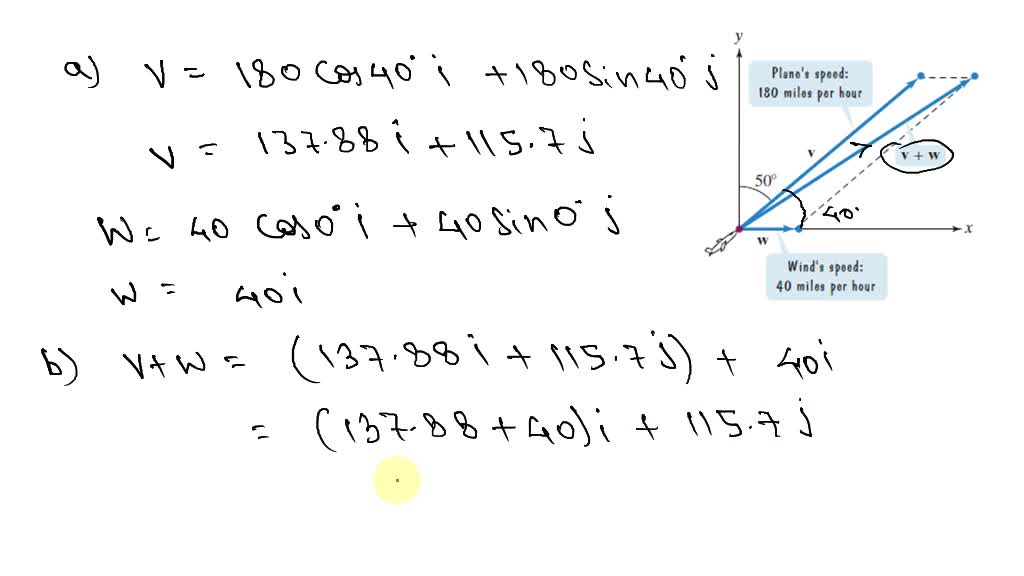 a) v = 180 cos40° i + 180 sin40° j
v = 137.88 i + 115.7 j
w = 40 cos0° i + 40 sin0° j
w = 40i
b) v+w = (137.88 i + 115.7 j) + 40i
= (137.88 + 40)i + 115.7 j
y
Plane's speed:
180 miles per hour
v
v + w
50°
40°
x
w
Wind's speed:
40 miles per hour